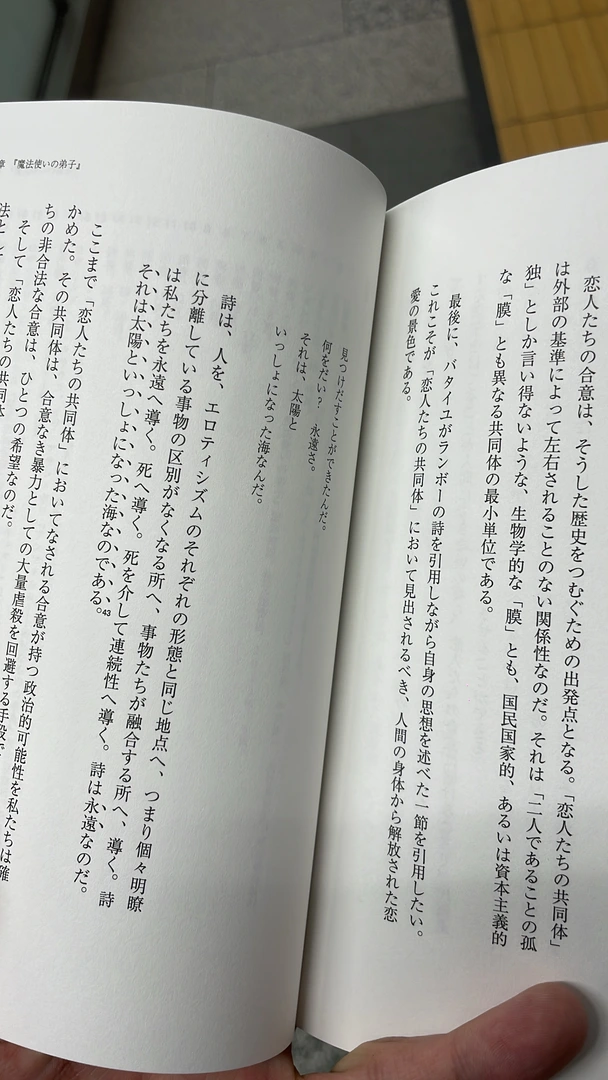 恋人たちの合意は、そうした歴史をつむぐための出発点となる。「恋人たちの共同体」
は外部の基準によって左右されることのない関係性なのだ。それは「二人であることの孤
独」としか言い得ないような、生物学的な「膜」とも、国民国家的、あるいは資本主義的
な「膜」とも異なる共同体の最小単位である。
最後に、バタイユがランボーの詩を引用しながら自身の思想を述べた一節を引用したい。
これこそが「恋人たちの共同体」において見出されるべき、人間の身体から解放された恋
愛の景色である。
章 『魔法使いの弟子』
見つけだすことができたんだ。
何をだい? 永遠さ。
それは、太陽と
いっしょになった海なんだ。
詩は、人を、エロティシズムのそれぞれの形態と同じ地点へ、つまり個々明瞭
に分離している事物の区別がなくなる所へ、事物たちが融合する所へ、導く。詩
は私たちを永遠へ導く。死へ導く。死を介して連続性へ導く。詩は永遠なのだ。
それは太陽といっしょになった海なのである。43
ここまで「恋人たちの共同体」においてなされる合意が持つ政治的可能性を私たちは確
かめた。その共同体は、合意なき暴力としての大量虐殺を回避する手段で
ちの非合法な合意は、ひとつの希望なのだ。
そして「恋人たちの共同体
法として